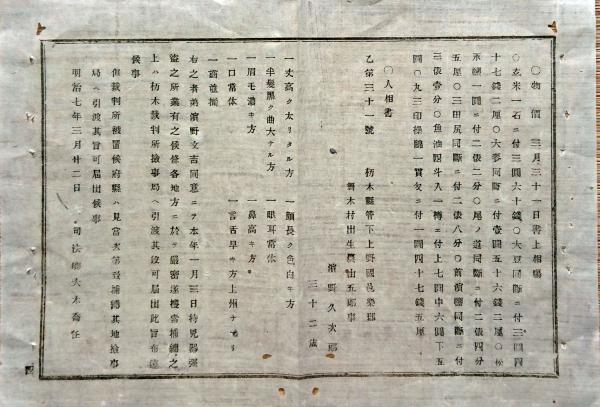 〇物價 三月三十一日書上相場
〇玄米一石ニ付三圓六十錢〇大豆同斷ニ付三圓四
十七錢二厘〇大麥同斷ニ付壹圓五十六錢二厘〇
永一圓ニ付二俵二分〇尾ノ道同斷ニ付二俵四分
五厘〇三田尻同斷ニ付二俵八分〇同斷ニ付
三俵壹分〇魚油四斗入一樽ニ付上七圓中六圓下五
圓〇九三印操綿一貫匁ニ付一圓四十七錢五厘
〇人相書
乙第三十一號 栃木縣管下上野國邑樂郡
村出生農由五郎事
濱野久次郎
三十二歳
一丈高ク太リタル方 一顏長ク色白キ方
一半髪黒ク曲大ナル方 一眼耳常体
一眉毛濃キ方 一鼻高キ方
一口常体 一言舌早キ方上州ナマリ
一
右之者弟濱野文吉同意ニテ本年一月三日持兇器强
盜之所業有之候條各地方ニ於テ嚴密遂搜索捕縛之
上ハ栃木裁判所檢事局ヘ引渡其段可届出此旨布達
候事
但裁判所被置候府縣ハ見當次第致捕縛其地檢事
局ヘ引渡其旨可届出候事
明治七年三月廿二日 司法卿大木喬任